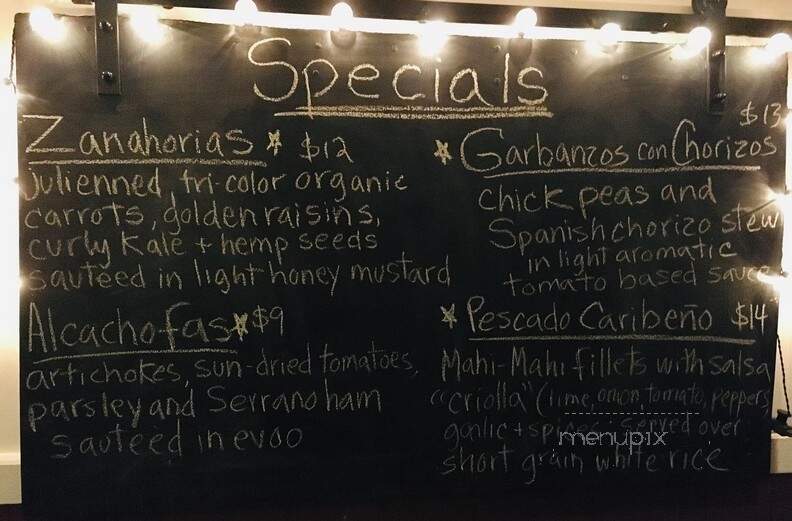 Specials
Zanahorias $12
julienned tri-color organic
carrots, golden raisins,
curly kale + hemp seeds
sauteed in light honey mustard
Alcachofas $9
artichokes, sun-dried tomatoes,
parsley and Serrano ham
sauteed in evoo
$13
Garbanzos con Chorizos
chick peas and
Spanish chorizo stew
in light aromatic
tomato based sauce
Pescado Caribeño $14
Mahi-Mahi fillets with salsa
"criolla" (lime, onion, tomato, peppers,
garlic + spices. Served over
short grain white rice
menupix